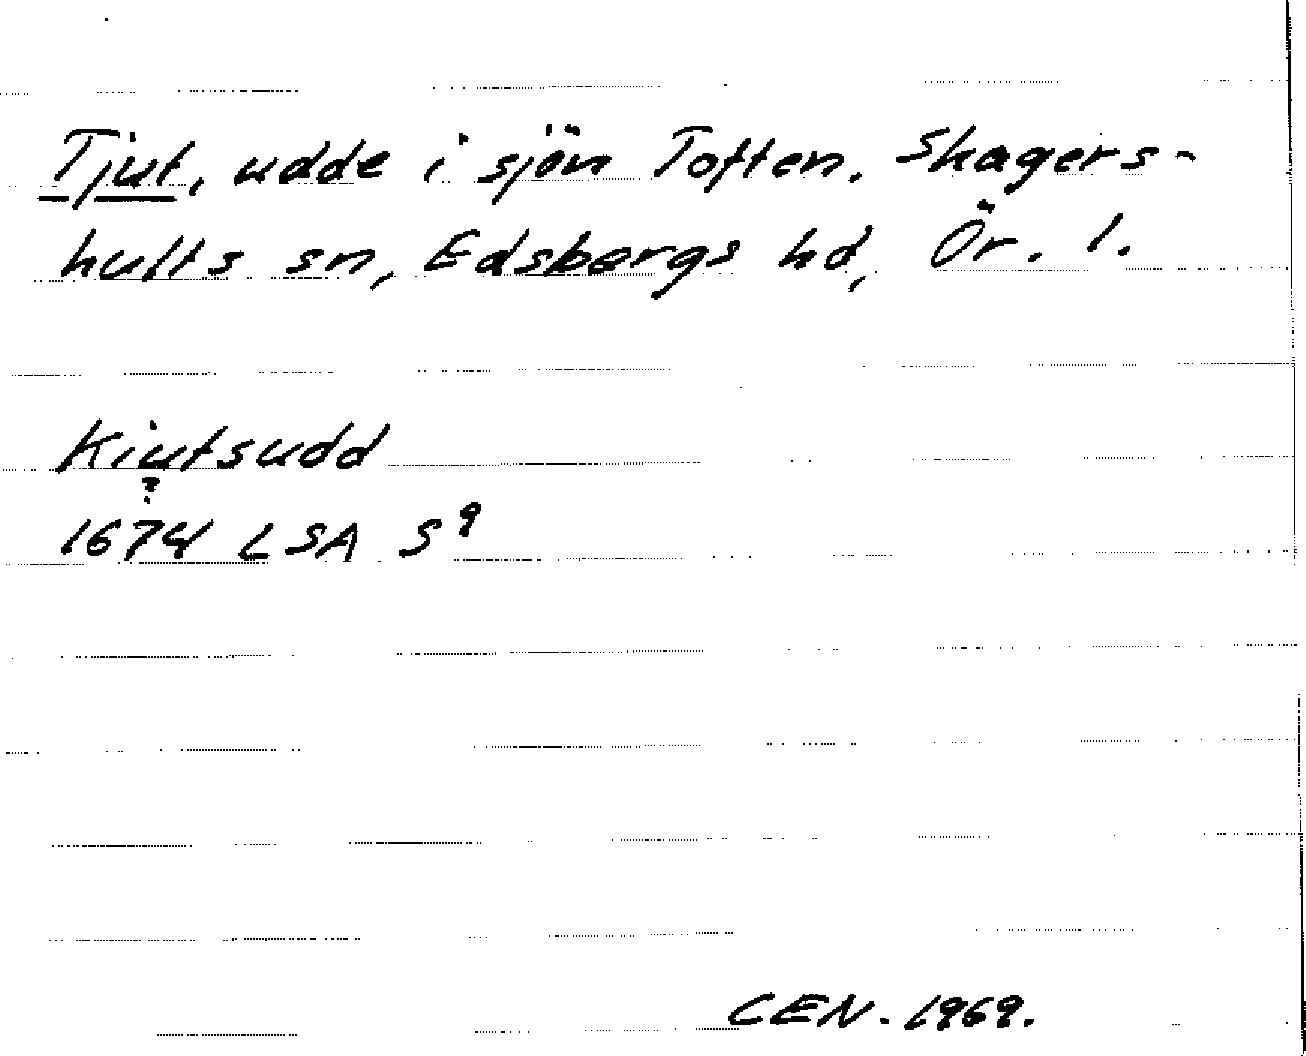 Tjut, udde i sjön Toften. Skagers-
hults sn, Edsbergs hd, Ör. l.
Kiutsudd
?
1674 LSA S⁹
CEN. 1969.